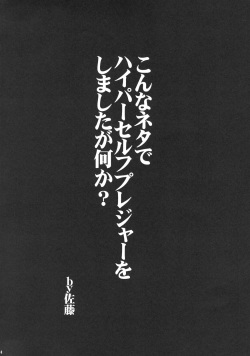 こんなネタで
ハイパーセルフプレジャーを
しましたが何か?
by佐藤